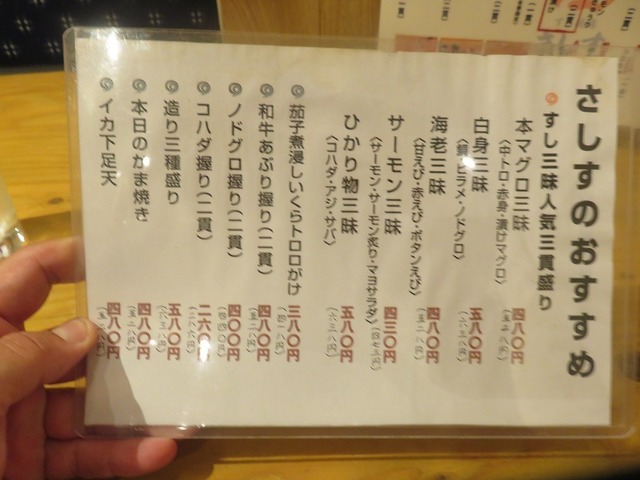 さしすのおすすめ
◎すし三昧人気三貫盛り
本マグロ三昧 四八〇円
〈中トロ・赤身・漬けマグロ〉 (五二八円)
白身三昧 五八〇円
ヒラメ・ノドグロ〉 (六三八円)
海老三昧 四八〇円
〈甘えび・赤えび・ボタンえび〉 (五二八円)
サーモン三昧 四三〇円
〈サーモン・サーモン炙り・マヨサラダ〉 (四七三円)
ひかり物三昧 五八〇円
〈コハダ・アジ・サバ〉 (六三八円)
◎茄子煮浸しいくらトロロがけ 三八〇円
(四一八円)
◎和牛あぶり握り(二貫) 四八〇円
(五二八円)
◎ノドグロ握り(二貫) 四〇〇円
(四四〇円)
◎コハダ握り(二貫) 二六〇円
(二八六円)
◎造り三種盛り 五八〇円
(六三八円)
◎本日のかま焼き 四八〇円
(五二八円)
◎イカ下足天 四八〇円
(五二八円)